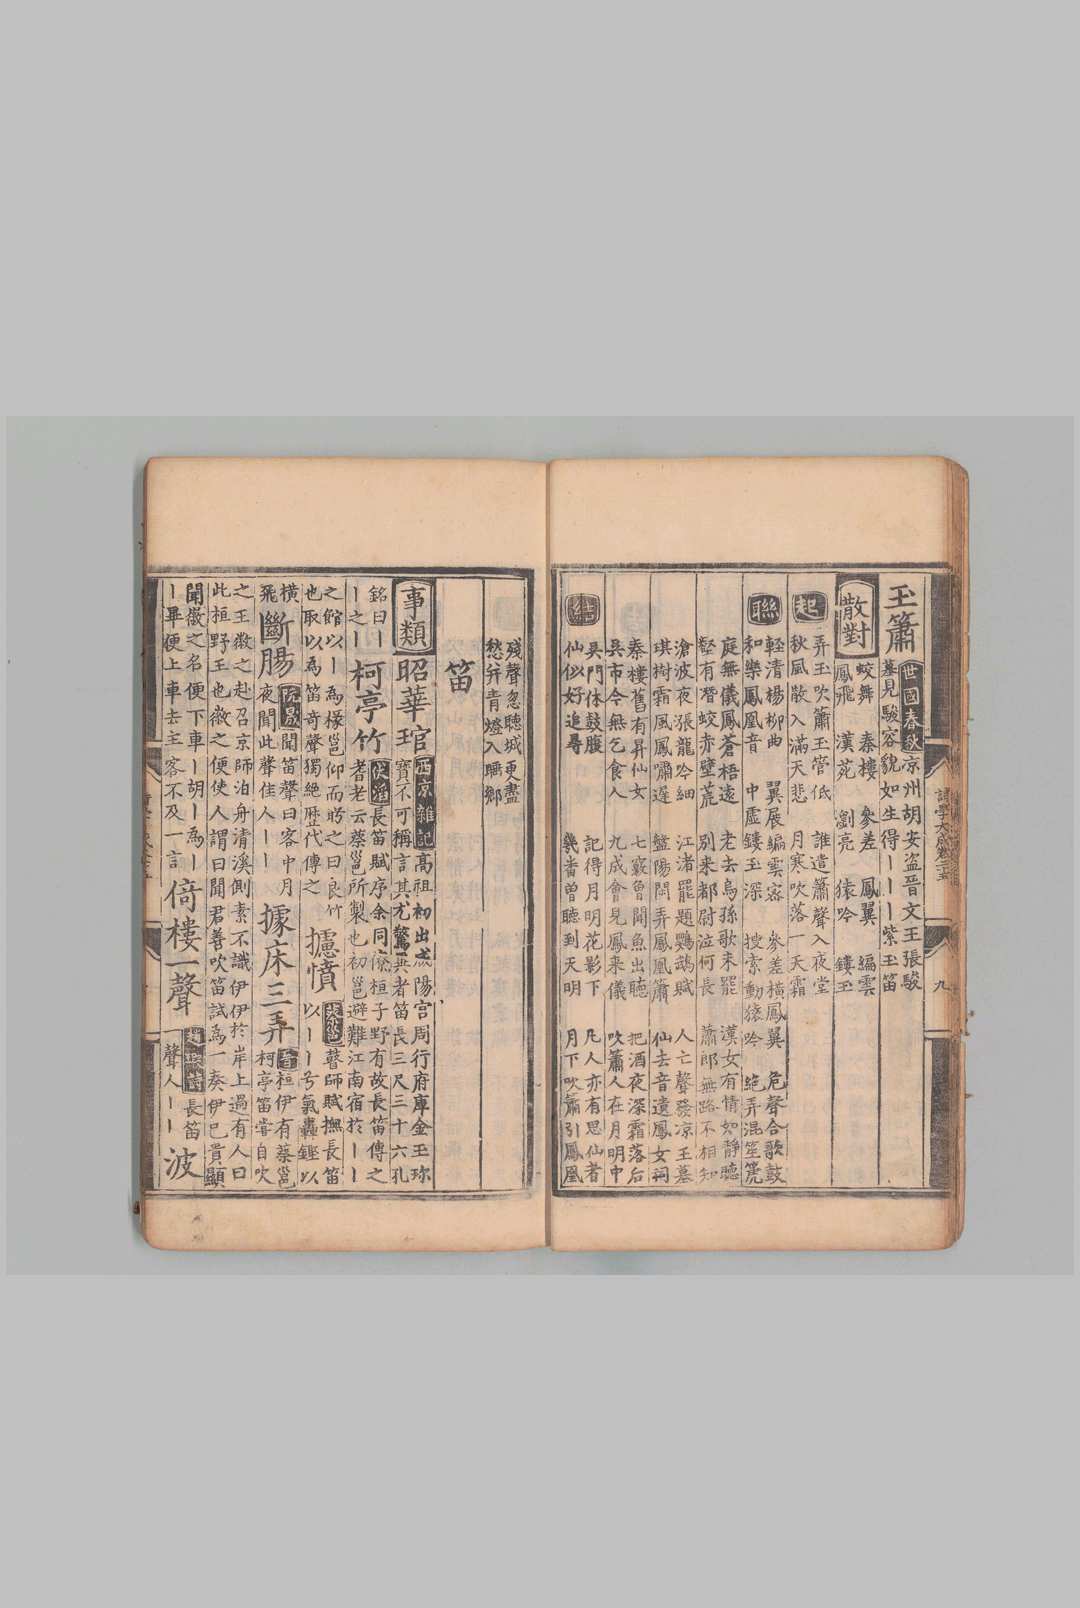 玉簫 世國春秋 京州胡安盜晉文王張駿
墓見駿容貌如生得丨丨丨紫玉笛
散對 蛟舞 秦樓 參差 鳳翼 編雲
鳳飛 漢苑 瀏亮 猿吟 鏤玉
起 弄玉吹簫玉管低 誰遣簫聲入夜堂
秋風散入滿天悲 月寒吹落一天霜
聯 輕清楊柳曲 翼展編雲容 參差橫鳳翼 危聲合歌鼓
和樂鳳凰音 中虛鏤玉深 搜索動猿吟 絕弄混笙箎
庭無儀鳳蒼梧遠 老去烏孫歌未罷 漢女有情如靜聽
壑有潛蛟赤壁荒 別来都尉泣何長 蕭郎無路不相知
滄波夜張龍吟細 江渚罷題鸚鵡賦 人亡聲發凉王墓
琪樹霜風鳳嘯遲 盤陽閒弄鳳凰簫 仙去音遺鳳女祠
秦樓舊有昇仙女 七竅曾聞魚出聽 把酒夜深霜落后
吳市今無乞食人 九成會見鳳来儀 吹簫人在月明中
結 吳門休鼓腹 記得月明花影下 凡人亦有思仙者
仙似好追尋 幾畨曾聽到天明 月下吹簫引鳳凰
殘聲忽聽城更盡
愁并青燈入睡鄉
笛
事類 昭華琯 西京雜記 高祖初出咸陽宮周行府庫金玉珎
寶不可稱言其尤驚異者笛長三尺三十六孔
銘曰丨丨 伏滔 長笛賦序余同僚桓子野有故長笛傳之
丨之丨 柯亭竹 耆老云蔡邕所製也初邕避難江南宿於丨
之館以丨為椽邕仰而眄之曰良竹 蔡邕 瞽師賦撫長笛
也取以為笛奇聲獨絕歷代傳之 攄憤 以丨丨兮氣轟鏗以
橫 阮晟 聞笛聲曰客中月 晉 桓伊有蔡邕
飛 斷腸 夜聞此聲佳人丨 據床三弄 柯亭笛甞自吹
之王徽之赴召京師泊舟清溪側素不識伊伊於岸上過有人曰
此桓野王也徽之便使人謂曰聞君善吹笛試為一奏伊巳貴顯
聞徽之名便下車丨胡丨為丨 趙嘏詩 長笛
丨畢便上車去主客不及一言 倚樓一聲 一聲人丨丨 波
詩學大成卷之五 九